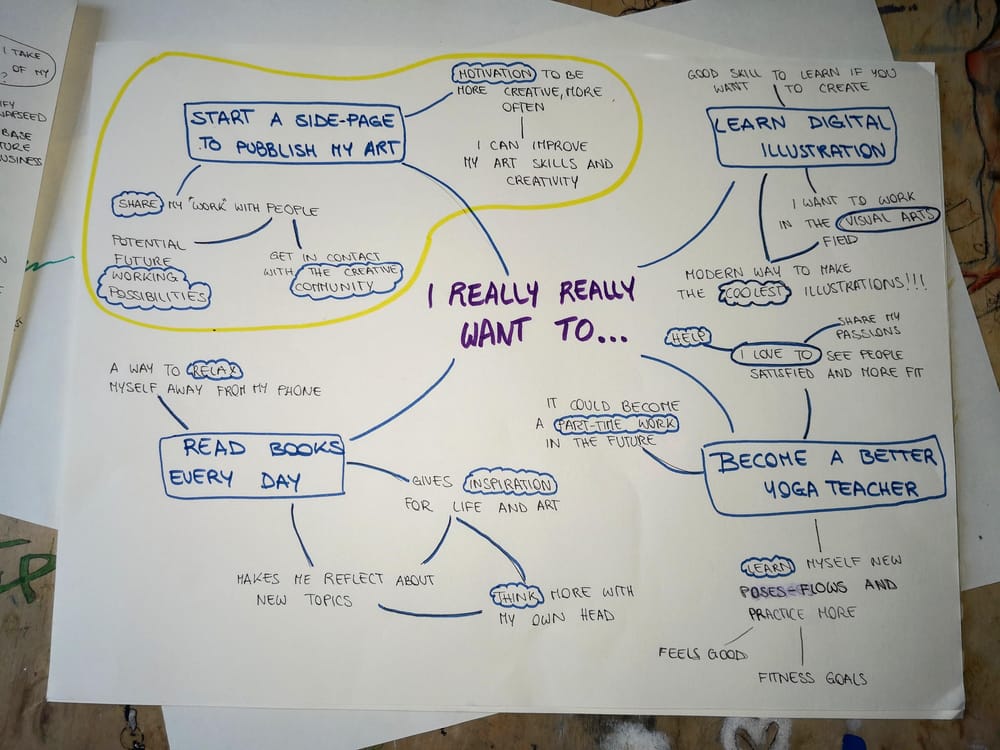 I TAKE
OF MY
?
BASE
START A SIDE-PAGE
TO PUBBLISH MY ART
MOTIVATION TO BE
MORE CREATIVE, MORE
OFTEN
I CAN IMPROVE
MY ART SKILLS AND
CREATIVITY
SHARE MY "WORK" WITH PEOPLE
POTENTIAL
FUTURE
WORKING
POSSIBILITIES
GET IN CONTACT
WITH THE CREATIVE
COMMUNITY
GOOD SKILL TO LEARN IF YOU
WANT TO CREATE
LEARN DIGITAL
ILLUSTRATION
I WANT TO WORK
IN THE VISUAL ARTS
FIELD
MODERN WAY TO MAKE
THE COOLEST ILLUSTRATIONS!!!
I REALLY REALLY
WANT TO...
A WAY TO RELAX
MYSELF AWAY FROM MY PHONE
READ BOOKS
EVERY DAY
GIVES INSPIRATION
FOR LIFE AND ART
MAKES ME REFLECT ABOUT
NEW TOPICS
THINK MORE WITH
MY OWN HEAD
HELP
SHARE MY
PASSIONS
I LOVE TO SEE PEOPLE
SATISFIED AND MORE FIT
IT COULD BECOME
A PART-TIME WORK
IN THE FUTURE
BECOME A BETTER
YOGA TEACHER
LEARN MYSELF NEW
POSES-FLOWS AND
PRACTICE MORE
FEELS GOOD
FITNESS GOALS